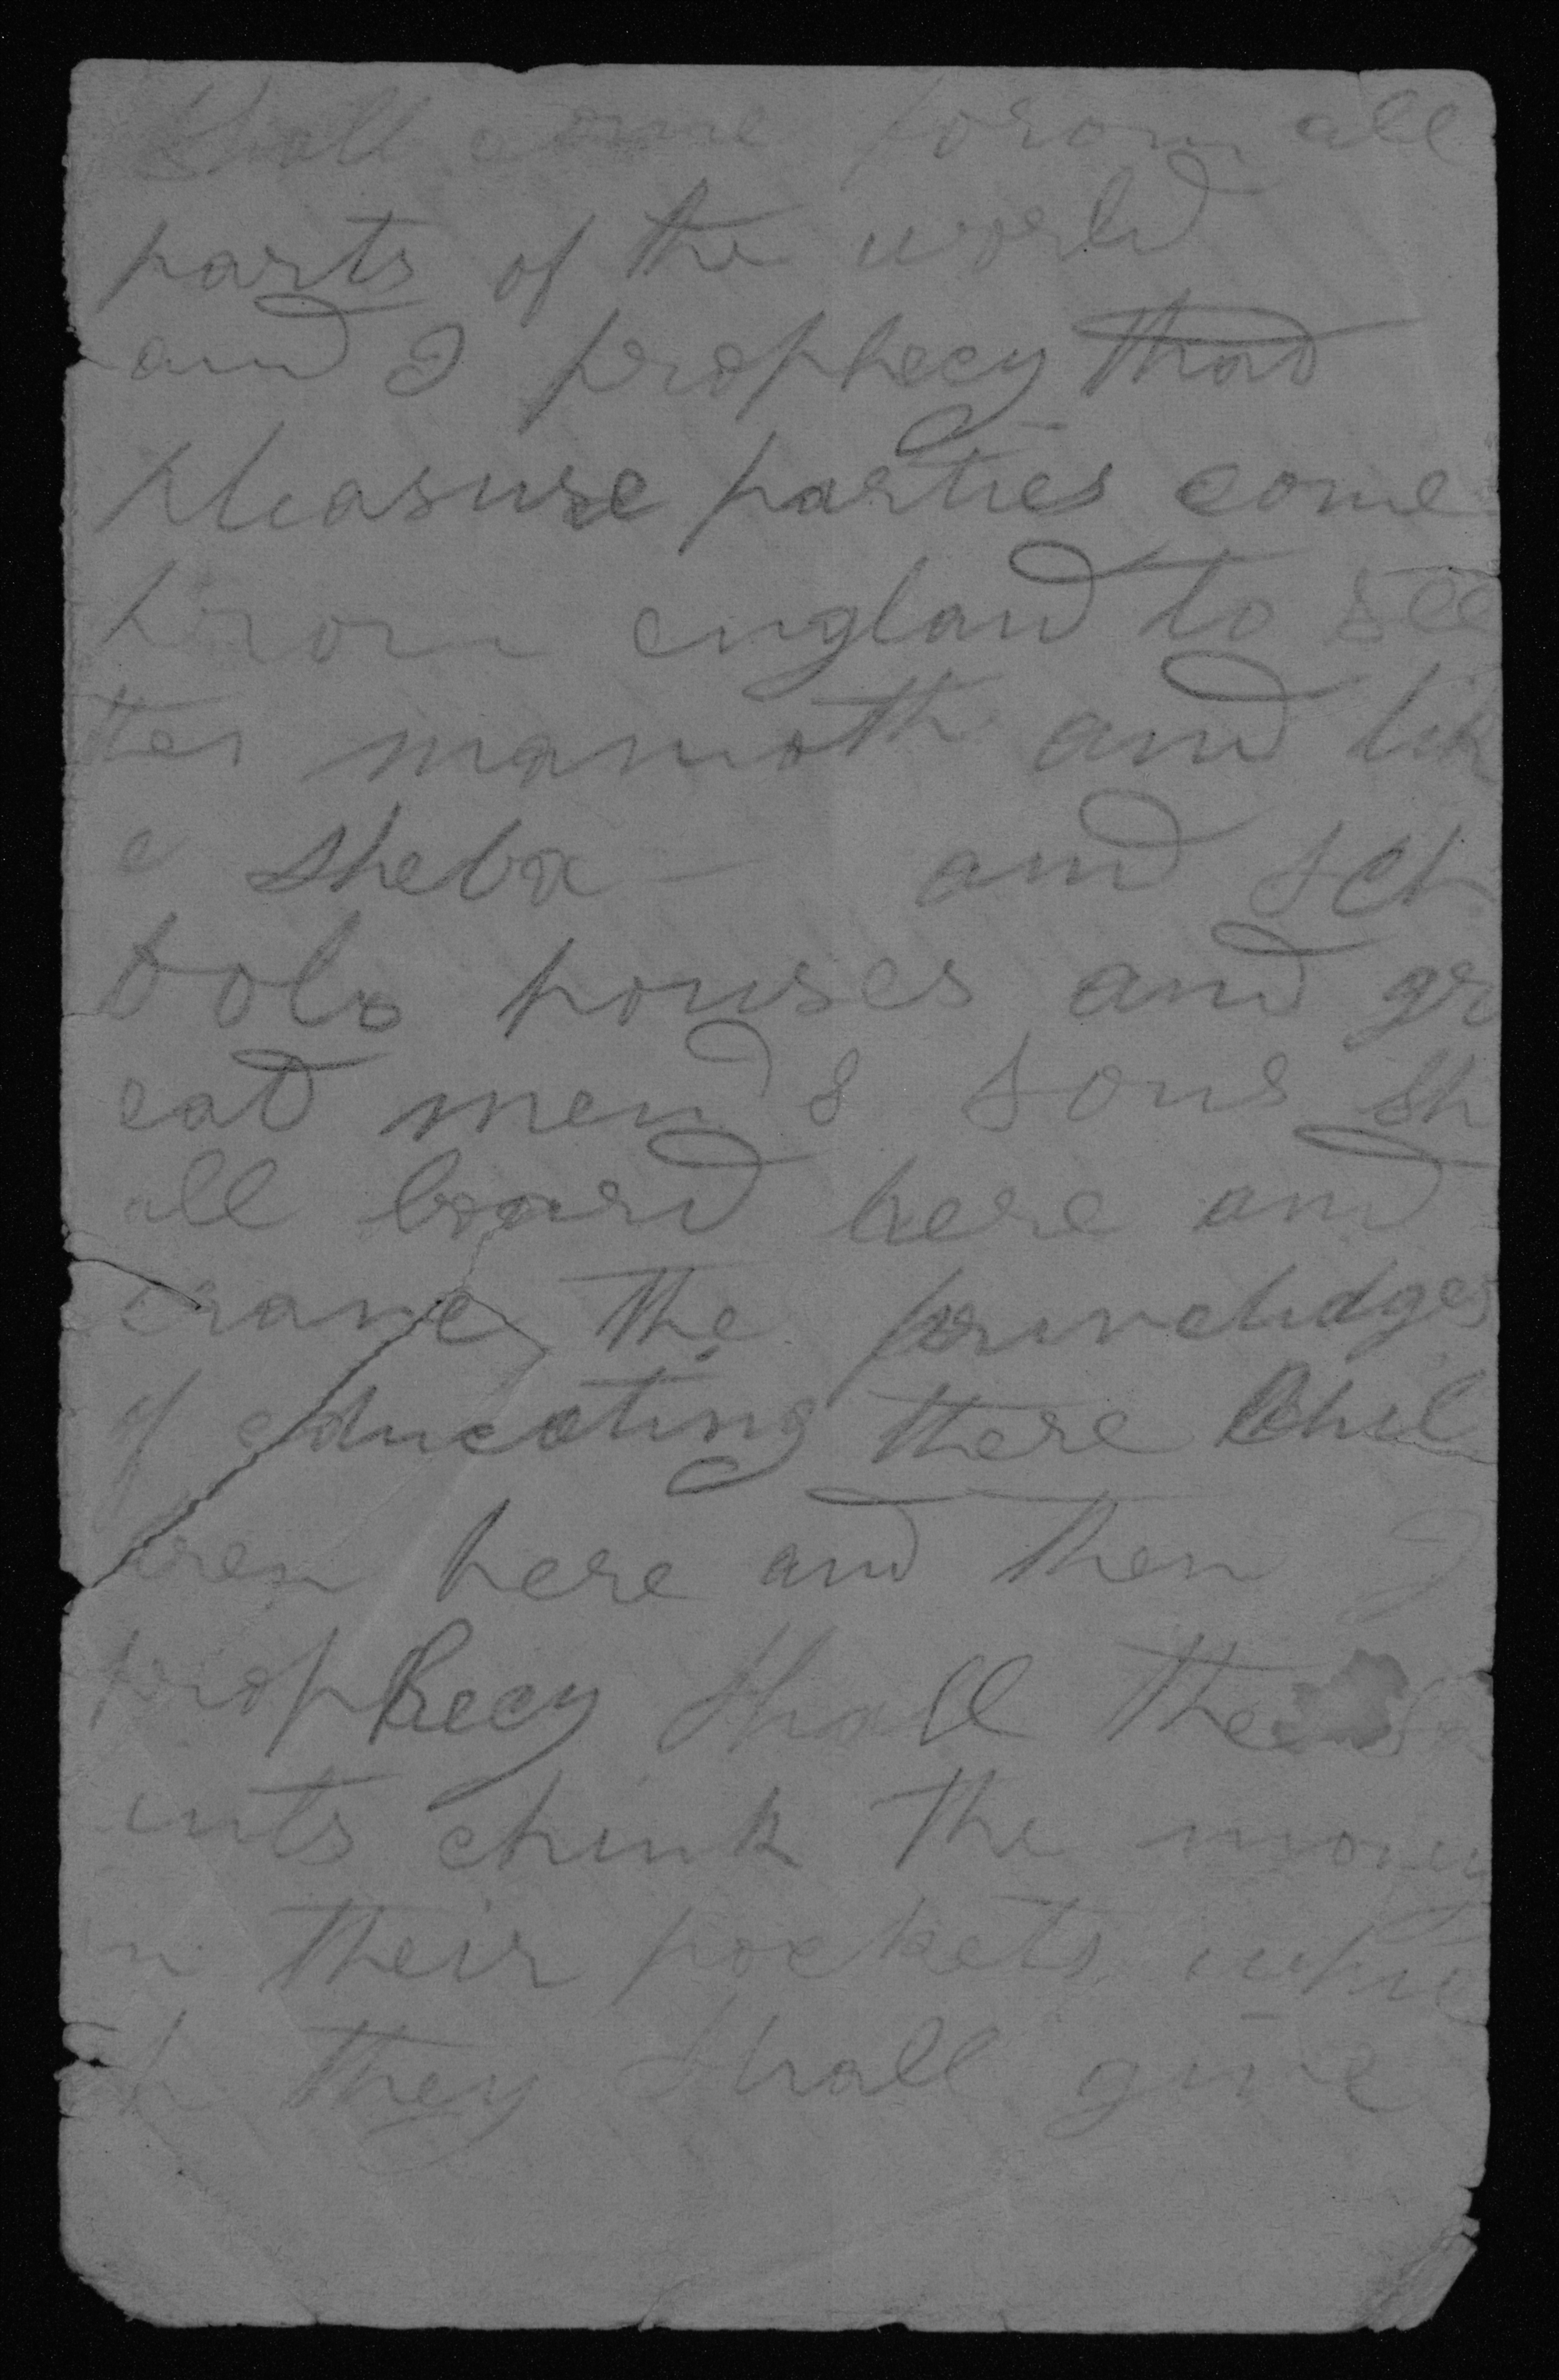 Shall come from all
parts of the world
and I prophecy that
pleasure parties come
from england to see
the mamoth and lik
e sheba — and sch
ools houses and gr
eat men's sons sh
all board here and
crave the privelidges
of educating there Chil
dren here and then I
prophecy shall the sa
ints chink the mony
in their pockets whic
h they shall give